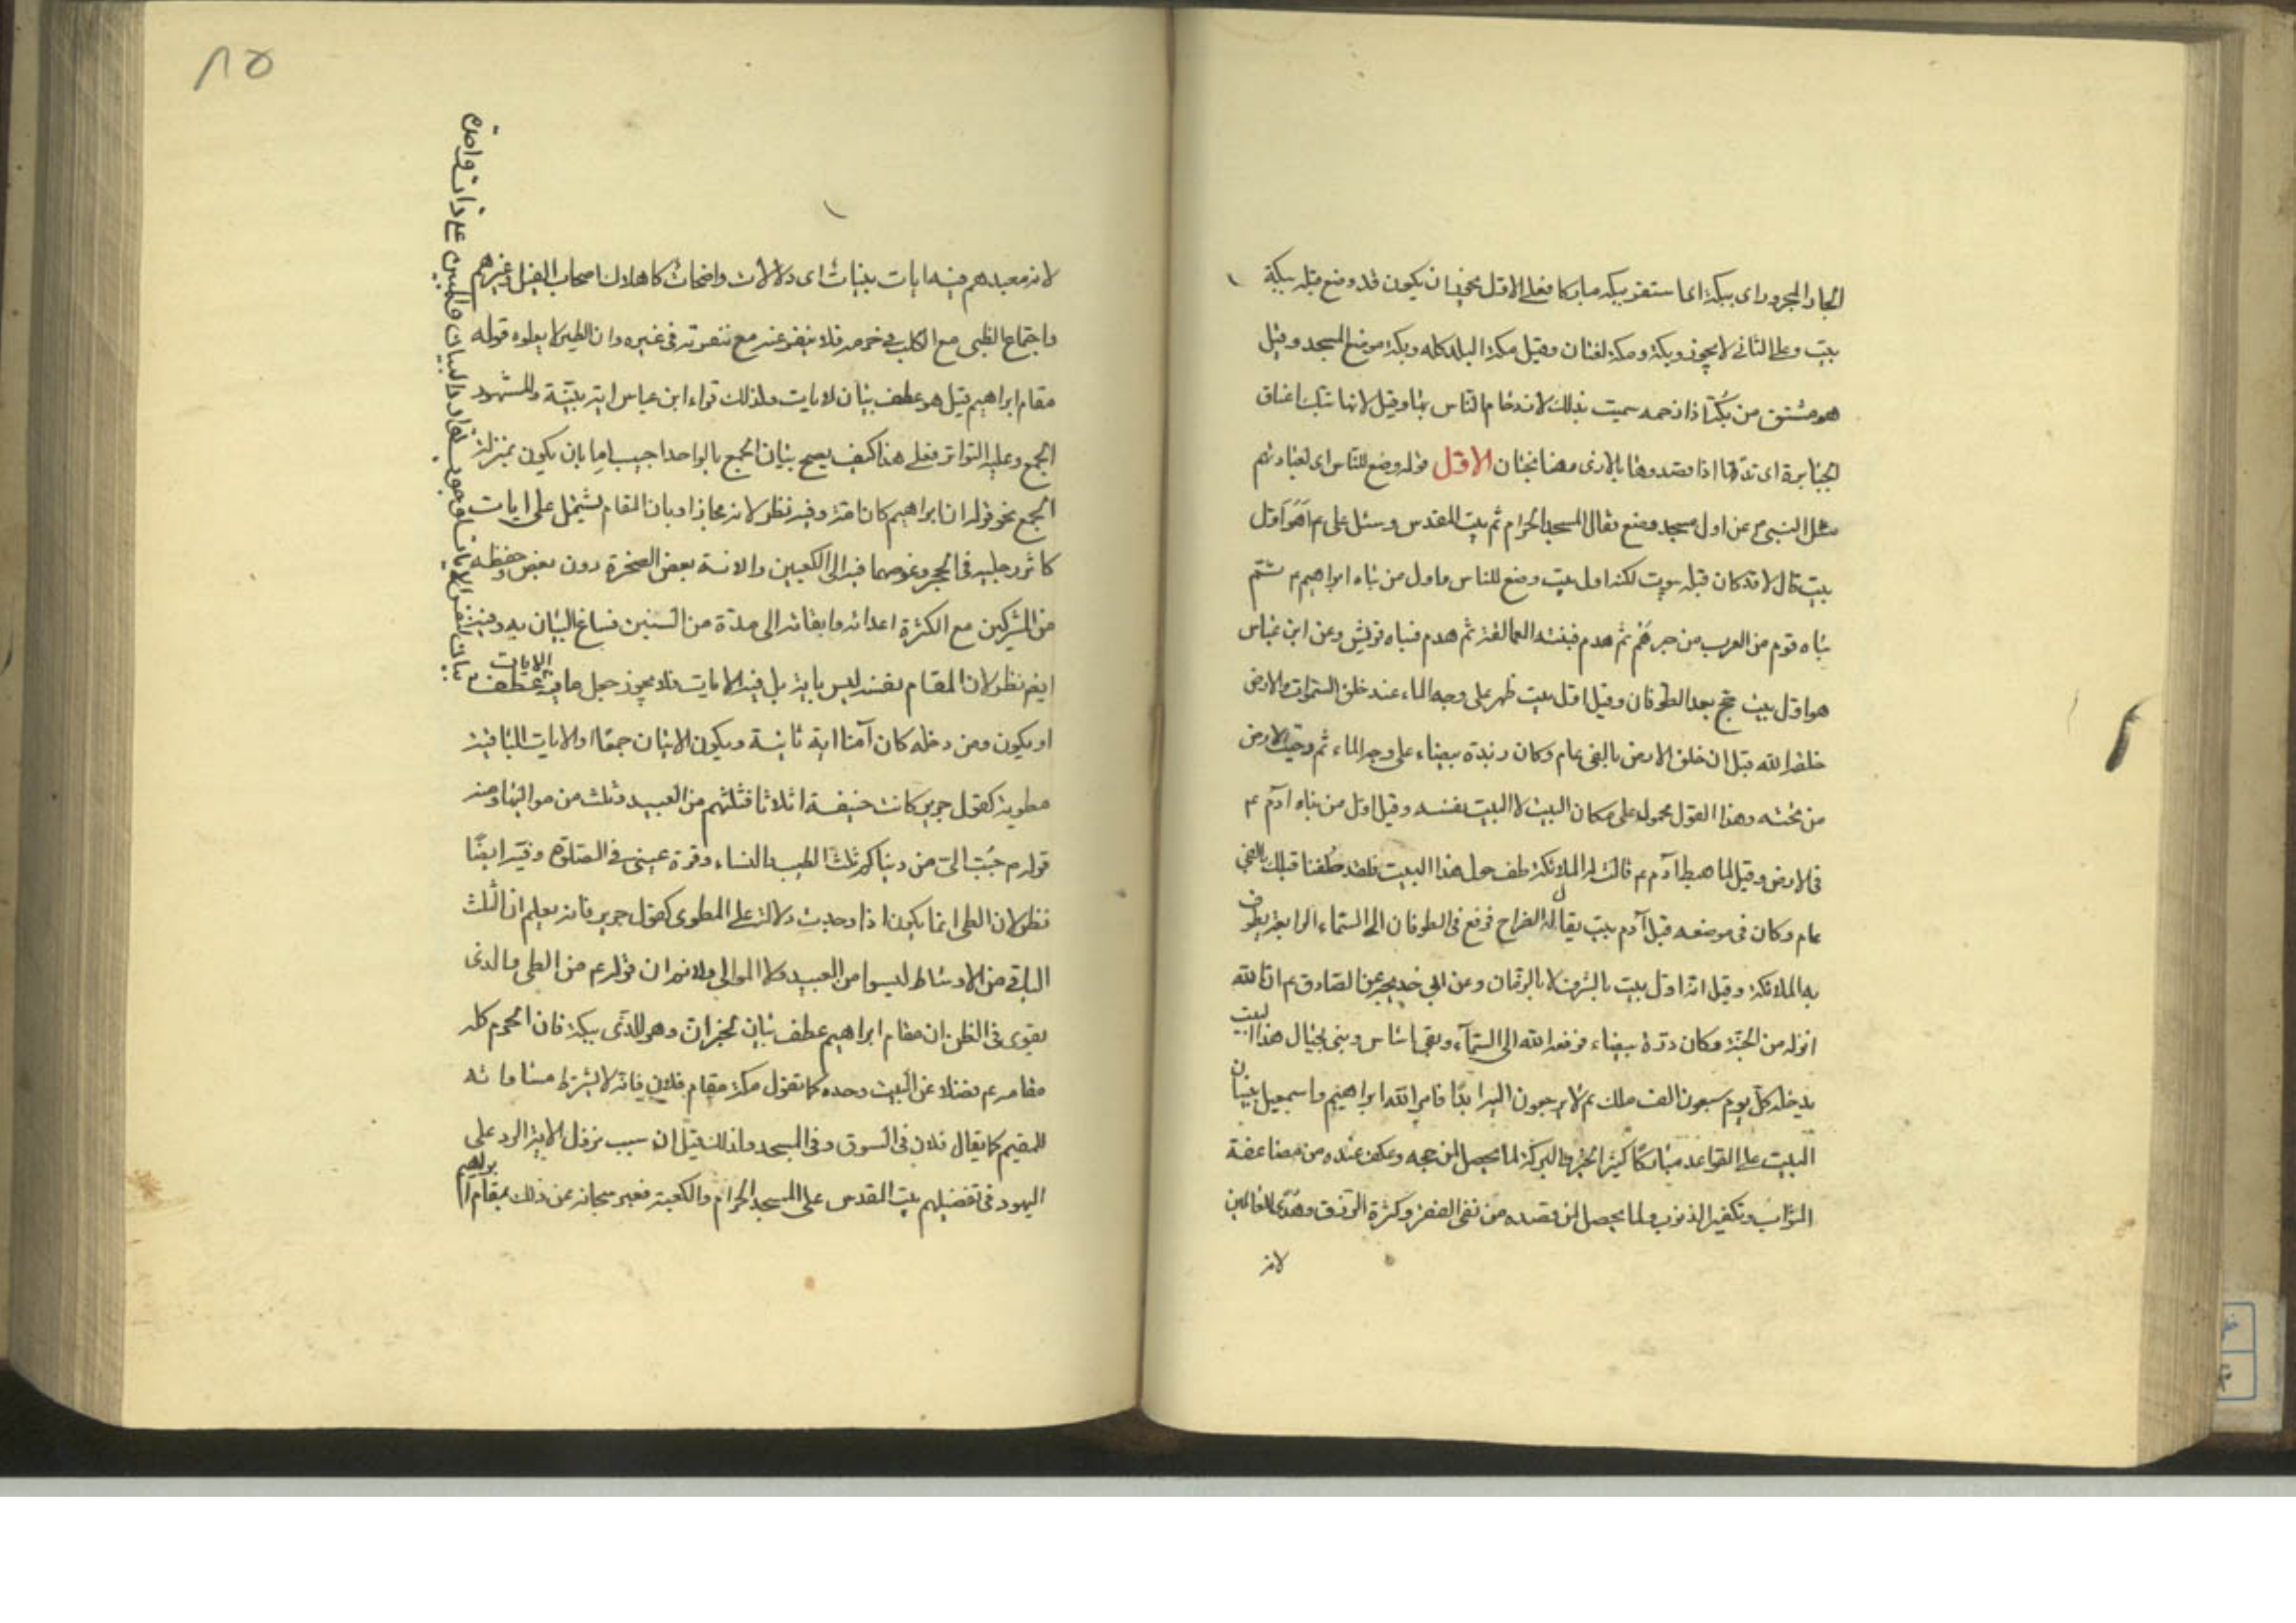 الجار والمجرور اى ببكة اى استقر ببكة مباركا فعلى الاول يجوز ان يكون قد وضع قبله ببكة
بيت وعلى الثانى لا يجوز وبكة ومكة لغتان وقيل مكة البلد كله وبكة موضع المسجد وقيل
هو مشتق من بكّة اذا زحمه سميت بذلك لازدحام الناس بها وقيل لانها تبكّ اعناق
الجبابرة اى تدقها اذا قصدوها بالاذى وهنا ابحاث الاول قوله وضع للناس اى لعبادتهم
سئل النبى ص عن اول مسجد وضع فقال المسجد الحرام ثم بيت المقدس وسئل على ع اهو اول
بيت قال لا قد كان قبله بيوت لكنه اول بيت وضع للناس واول من بناه ابراهيم ع ثم
بناه قوم من العرب من جرهم ثم هدم فبنته العمالقة ثم هدم فبناه قريش وعن ابن عباس
هو اول بيت حج بعد الطوفان وقيل اول بيت ظهر على وجه الماء عند خلق السموات والارض
خلقه الله قبل ان خلق الارض بالفى عام وكان زبدة بيضاء على وجه الماء ثم دحيت الارض
من تحته وهذا القول محمول على مكان البيت لا البيت نفسه وقيل اول من بناه آدم ع
فى الارض وقيل لما هبط آدم ع قالت له الملائكة طف حول هذا البيت فلقد طفنا قبلك بالفى
عام وكان فى موضعه قبل آدم بيت يقال له الضراح فرفع فى الطوفان الى السماء الرابعة يطوف
به الملائكة وقيل انه اول بيت بالشرف لا بالزمان وعن ابى خديجة عن الصادق ع ان الله
انزله من الجنة وكان درة بيضاء فرفعه الله الى السماء وبقى اساس وبنى بحيال هذا البيت
يدخله كل يوم سبعون الف ملك ثم لا يرجعون اليه ابدا فامر الله ابراهيم واسمعيل ببنيان
البيت على القواعد مباركا كثير الخير والبركة لما يحصل لمن حجه وعكف عنده من مضاعفة
الثواب وتكفير الذنوب ولما يحصل لمن قصده من نفى الفقر وكثرة الرزق وهدى للعالمين
لانه
٨٥
لانه معبدهم فيه ايات بينات اى دلالات واضحات كاهلاك اصحاب الفيل وغيرهم
واجتماع الظبى مع الكلب فى حرمه فلا ينفر عنه مع نفرته فى غيره وان الطير لا يعلوه قوله
مقام ابراهيم قيل هو عطف بيان لايات ولذلك قراء ابن عباس اية بينة والمشهور
الجمع وعليه التواتر فعلى هذا كيف يصح بيان الجمع بالواحد اجيب اما بان يكون بمنزلة
الجمع نحو قوله ان ابراهيم كان امة وفيه نظر لانه مجاز او بان المقام يشتمل على ايات
كاثر رجليه فى الحجر وغوصهما فيه الى الكعبين والانة بعض الصخرة دون بعض وحفظه
من المشركين مع الكثرة اعدائه وابقائه الى مدة من السنين فساغ البيان به وفيه
ايضا نظر لان المقام نفسه ليس باية بل فيه الايات فلا يجوز جعل ما فيه الايات عطف
او يكون ومن دخله كان آمنا اية ثانية ويكون الاثنان جمعا او الايات الباقية
مطوية كقول جرير كانت حنيفة اثلاثا فثلثهم من العبيد وثلث من مواليها ومنه
قوله ع حبّب الى من دنياكم ثلث الطيب والنساء وقرة عينى فى الصلوة وفيه ايضا
نظر لان الطى انما يكون اذا وجدت دلالة على المطوى كقول جرير فانه يعلم ان الثلث
الباقى من الاوساط ليسوا من العبيد ولا الموالى ولا نم ان قوله ع من الطى والذى
يقوى فى الظن ان مقام ابراهيم عطف بيان وهو للذى ببكة فان الحرم كله
مقامه ع فضلا عن البيت وحده كما تقول مكة مقام فلان فانه لا يشترط مساواته
للمقيم كما يقال فلان فى السوق وفى المسجد ولذلك قيل ان سبب نزول الاية الرد على
اليهود فى تفضيلهم بيت المقدس على المسجد الحرام والكعبة فعبر سبحانه عن ذلك بمقام ابراهيم